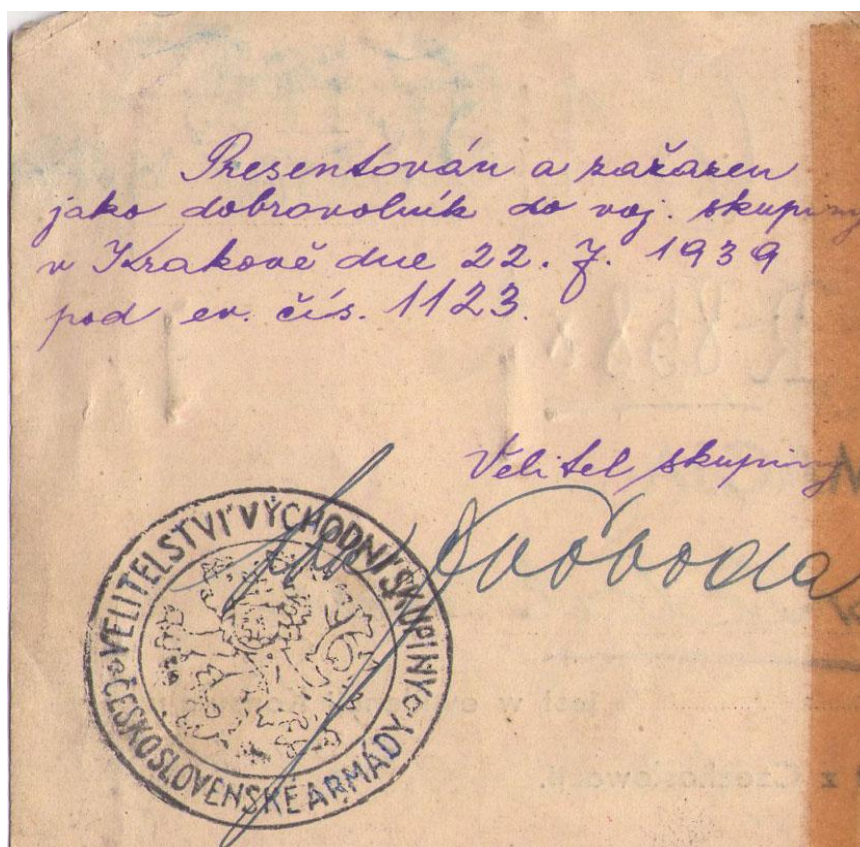 Presentován a zařazen
jako dobrovolník do voj. skupiny
v Krakově dne 22. 7. 1939
pod ev. čís. 1123.
Velitel skupiny
Svoboda
VELITELSTVÍ VÝCHODNÍ SKUPINY
ČESKOSLOVENSKÉ ARMÁDY